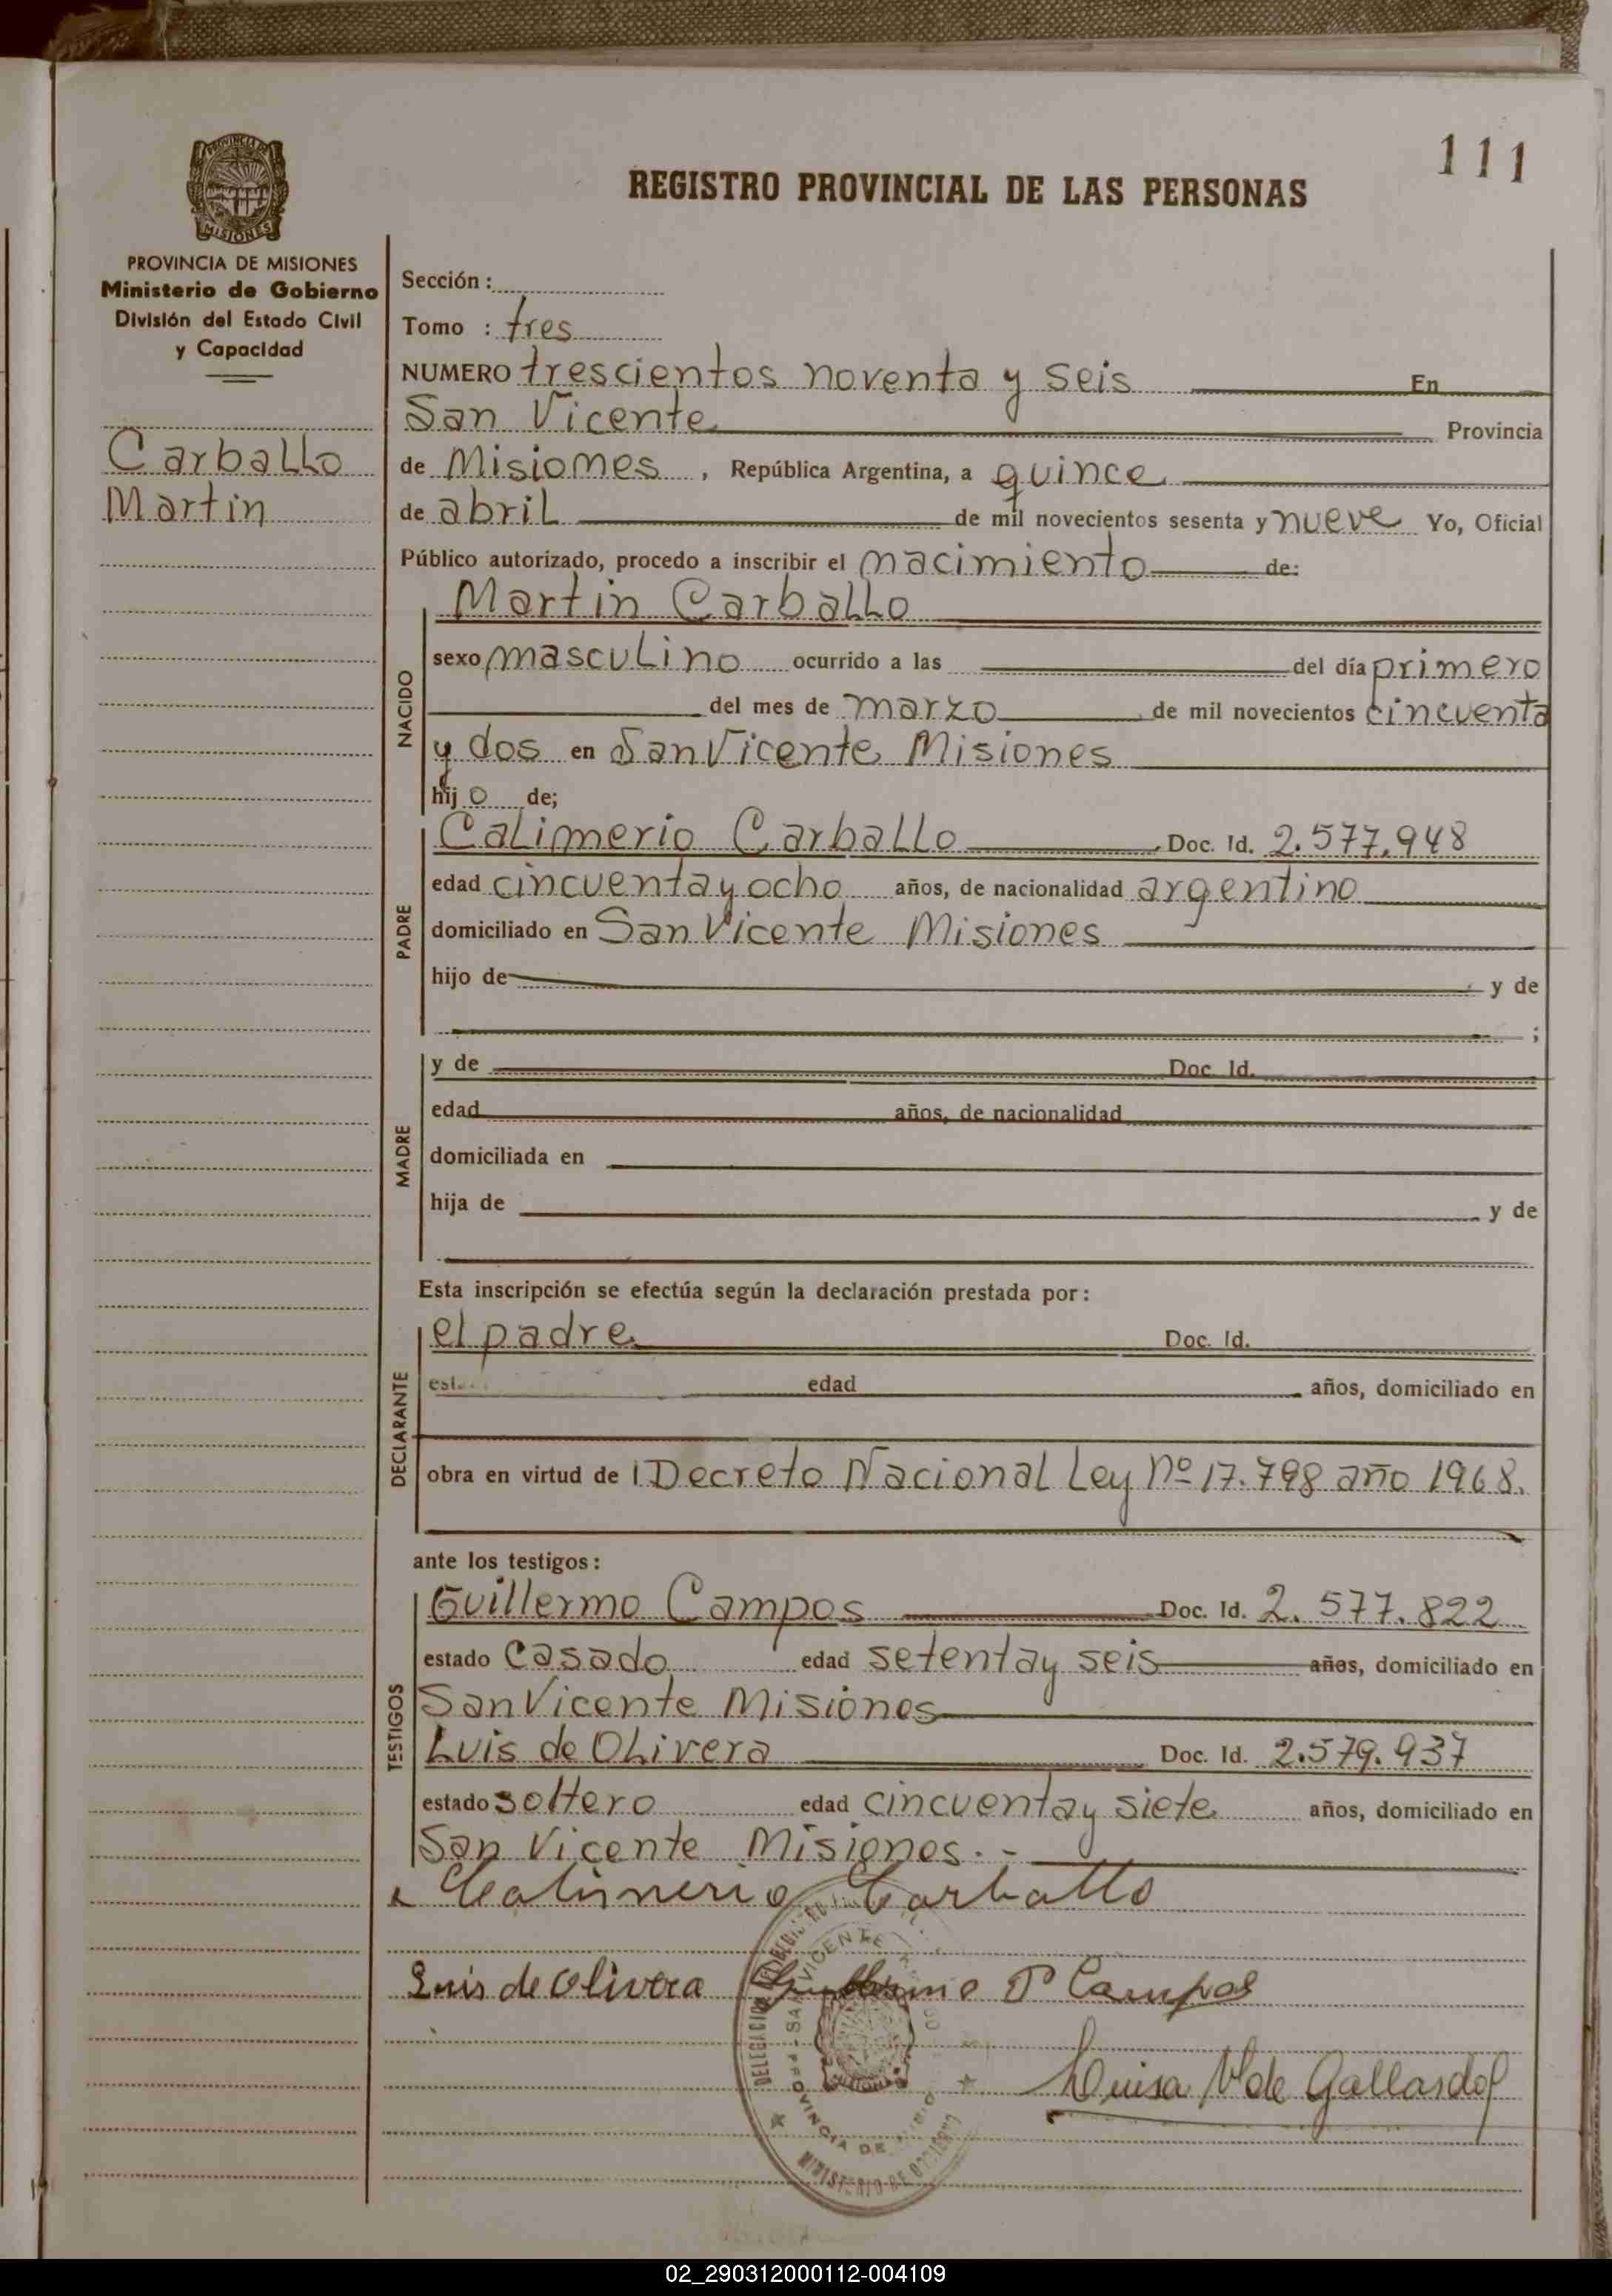 111
REGISTRO PROVINCIAL DE LAS PERSONAS
PROVINCIA DE MISIONES
PROVINCIA DE MISIONES
Ministerio de Gobierno
División del Estado Civil
y Capacidad
Carballo
Martin
Sección:
Tomo : tres
NUMERO trescientos noventa y seis En
San Vicente Provincia
de Misiones, República Argentina, a quince
de abril de mil novecientos sesenta y nueve Yo, Oficial
Público autorizado, procedo a inscribir el nacimiento de:
Martin Carballo
NACIDO
sexo masculino ocurrido a las del día primero
del mes de marzo de mil novecientos cincuenta
y dos en San Vicente Misiones
hijo de;
PADRE
Calimerio Carballo Doc. Id. 2.577.948
edad cincuenta y ocho años, de nacionalidad argentino
domiciliado en San Vicente Misiones
hijo de y de
;
MADRE
y de Doc. Id.
edad años, de nacionalidad
domiciliada en
hija de y de
Esta inscripción se efectúa según la declaración prestada por:
DECLARANTE
el padre Doc. Id.
edad años, domiciliado en
obra en virtud de Decreto Nacional Ley Nº 17.798 año 1968.
ante los testigos:
TESTIGOS
Guillermo Campos Doc. Id. 2.577.822
estado Casado edad setenta y seis años, domiciliado en
San Vicente Misiones
Luis de Olivera Doc. Id. 2.579.937
estado soltero edad cincuenta y siete años, domiciliado en
San Vicente Misiones.-
Calimerio Carballo
Luis de Olivera Guillermo P Campos
Luisa V de Gallardo
SAN VICENTE
PROVINCIA DE
MINISTERIO DE GOBIERNO
02_290312000112-004109